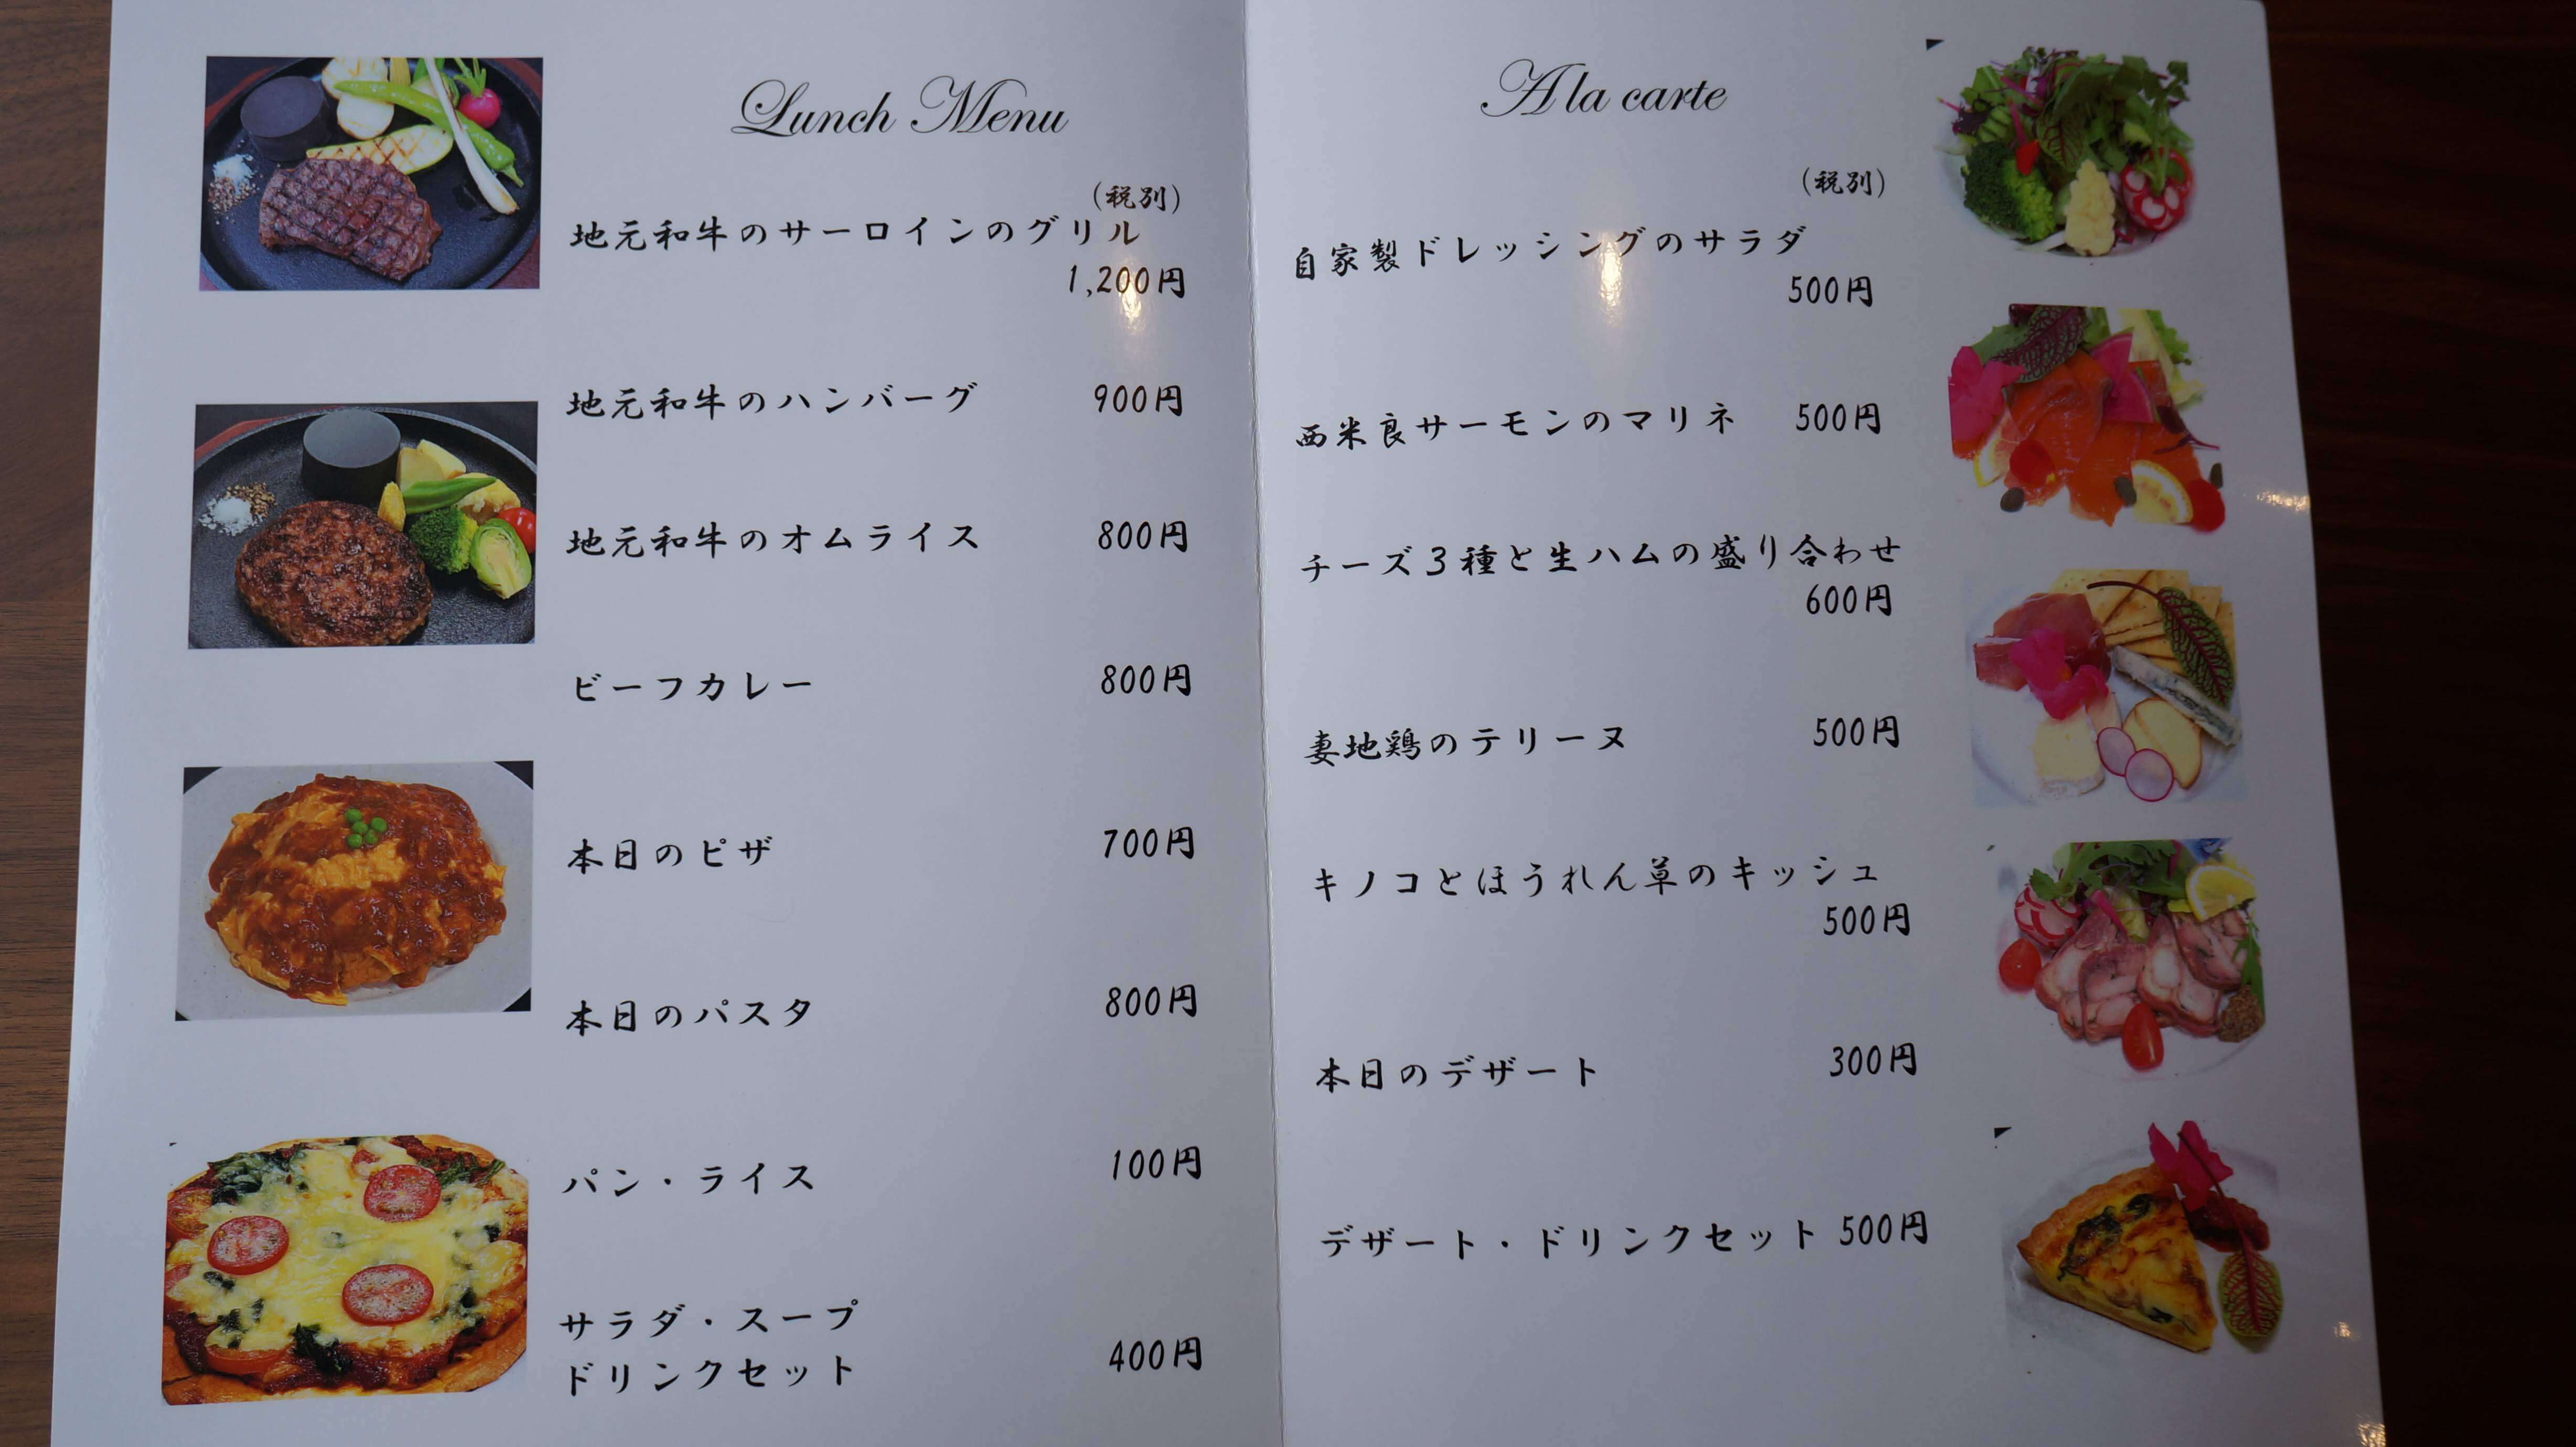 Lunch Menu
(税別)
地元和牛のサーロインのグリル
1,200円
地元和牛のハンバーグ 900円
地元和牛のオムライス 800円
ビーフカレー 800円
本日のピザ 700円
本日のパスタ 800円
パン・ライス 100円
サラダ・スープ
ドリンクセット 400円
A la carte
(税別)
自家製ドレッシングのサラダ
500円
西米良サーモンのマリネ 500円
チーズ3種と生ハムの盛り合わせ
600円
妻地鶏のテリーヌ 500円
キノコとほうれん草のキッシュ
500円
本日のデザート 300円
デザート・ドリンクセット 500円